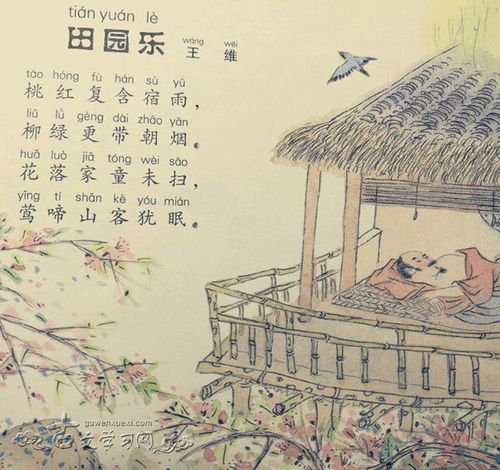 tián yuán lè
田园乐
wáng wéi
王维
táo hóng fù hán sù yǔ
桃红复含宿雨，
liǔ lǜ gèng dài zhāo yān
柳绿更带朝烟。
huā luò jiā tóng wèi sǎo
花落家童未扫，
yīng tí shān kè yóu mián
莺啼山客犹眠。
guwenxuexi.com
古文学习网